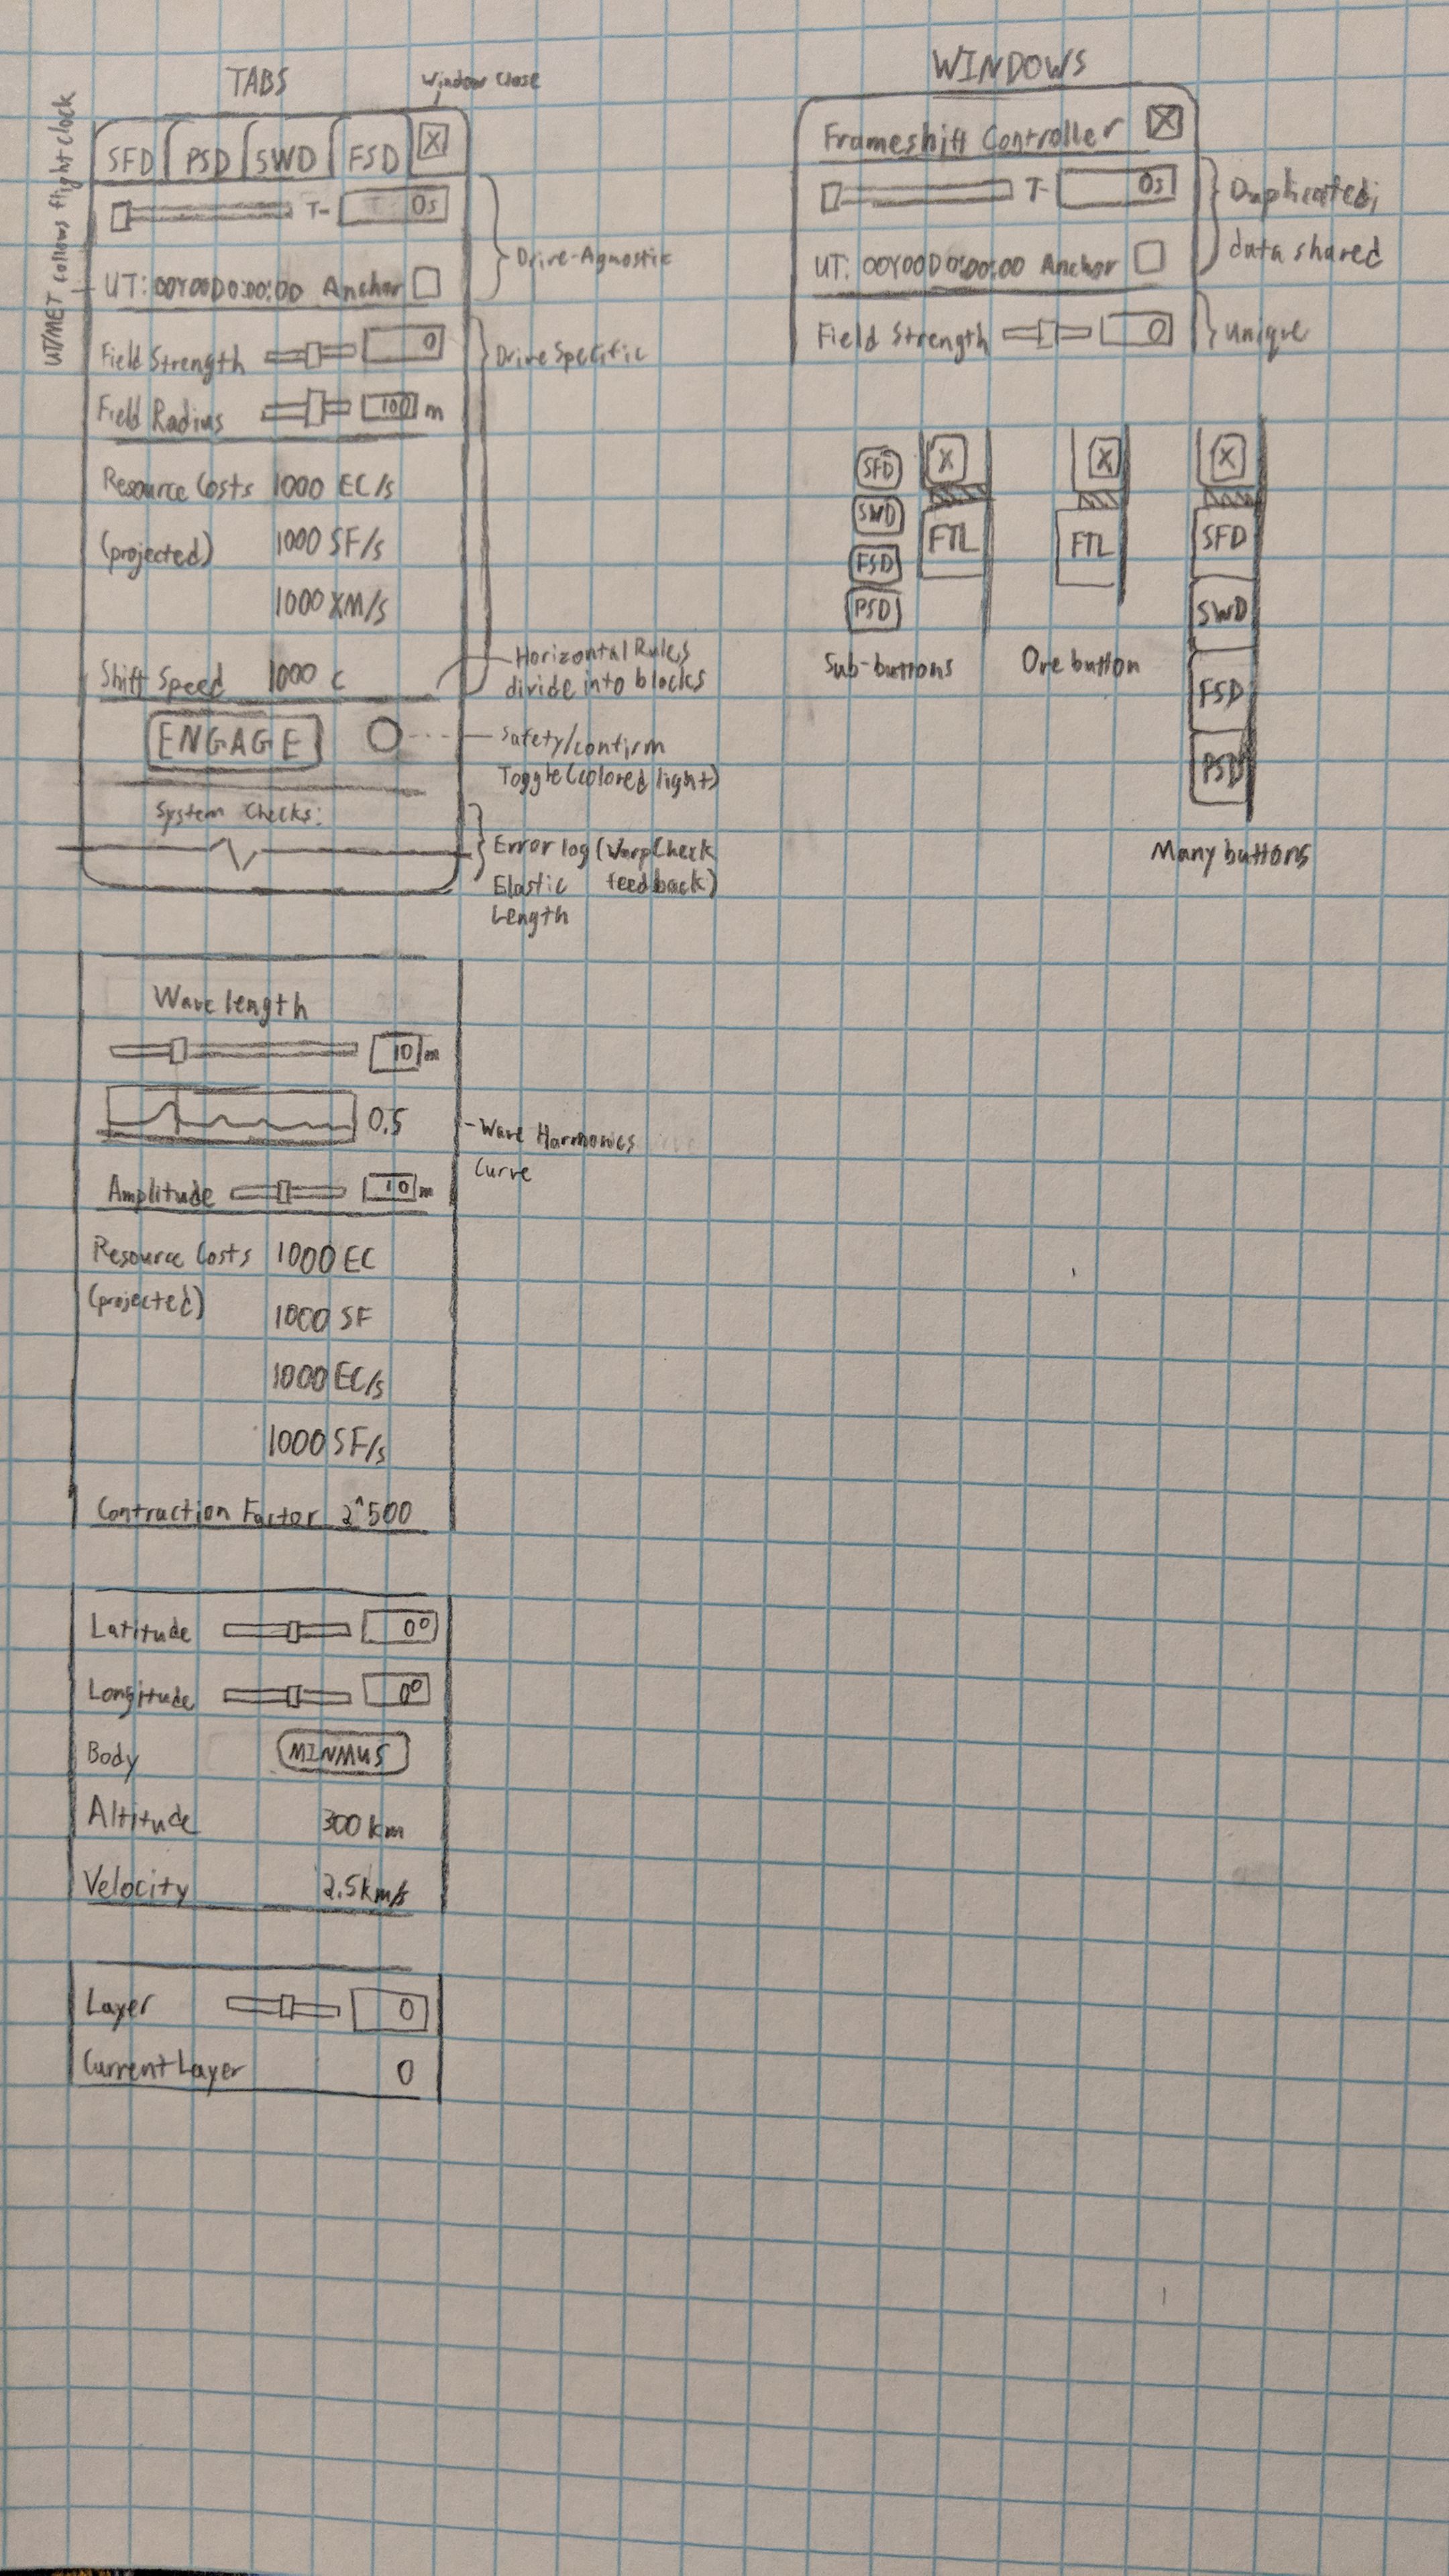 TABS
Window Close
UT/MET follows flight clock
SFD PSD SWD FSD X
T- 0s
Drive-Agnostic
UT: 00Y00D0:00:00 Anchor
Field Strength 0
Drive Specific
Field Radius 100 m
Resource Costs 1000 EC/s
(projected) 1000 SF/s
1000 XM/s
Shift Speed 1000 c
Horizontal Rules
divide into blocks
ENGAGE
Safety/confirm
Toggle (colored light)
System Checks:
Error log (WarpCheck
Elastic feedback)
Length
Wavelength
10 m
0.5
Wave Harmonics
Curve
Amplitude 10 m
Resource Costs 1000 EC
(projected)
1000 SF
1000 EC/s
1000 SF/s
Contraction Factor 2^500
Latitude 0°
Longitude 0°
Body MINMUS
Altitude 300 km
Velocity 2.5km/s
Layer 0
Current Layer 0
WINDOWS
Frameshift Controller X
T- 0s
Duplicated;
data shared
UT: 00Y00D0:00:00 Anchor
Field Strength 0
Unique
SFD X
SWD
FTL
FSD
PSD
Sub-buttons
X
FTL
One button
X
SFD
SWD
FSD
PSD
Many buttons